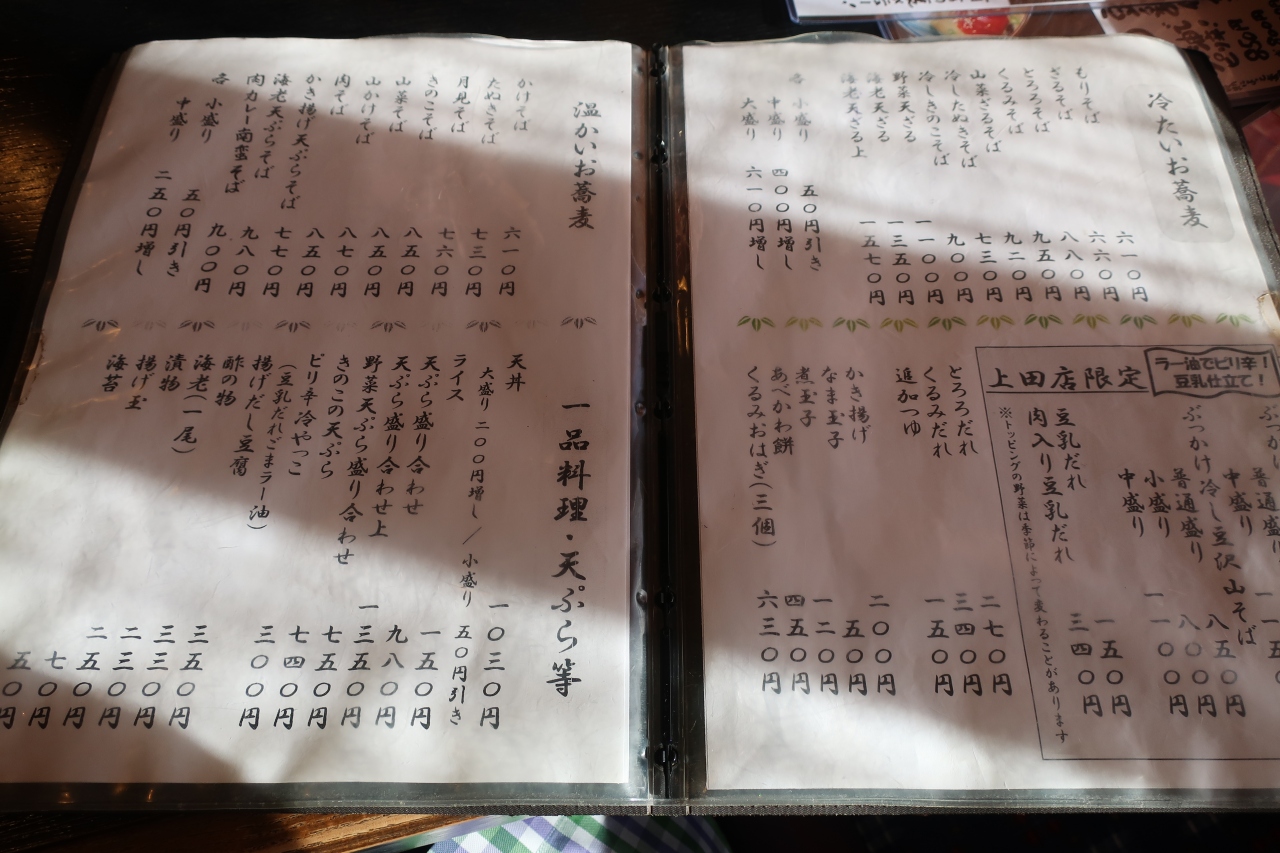 冷たいお蕎麦
もりそば 六一〇円
ざるそば 六六〇円
とろろそば 八八〇円
くるみそば 九五〇円
山菜ざるそば 九二〇円
冷したぬきそば 七三〇円
冷しきのこそば 九〇〇円
野菜天ざる 一一〇〇円
海老天ざる 一三五〇円
海老天ざる上 一五七〇円
各 小盛り 五〇円引き
中盛り 四〇〇円増し
大盛り 六一〇円増し
ラー油でピリ辛!
豆乳仕立て!
上田店限定
普通盛り
中盛り
ぶっかけ冷し豆沢山そば
普通盛り 八五〇円
小盛り 八〇〇円
中盛り 一一〇〇円
豆乳だれ 一五〇円
肉入り豆乳だれ 三四〇円
※トッピングの野菜は季節によって変わることがあります
とろろだれ 二七〇円
くるみだれ 三四〇円
追加つゆ 一五〇円
かき揚げ 二〇〇円
なま玉子 五〇円
煮玉子 一二〇円
あべかわ餅 四五〇円
くるみおはぎ(三個) 六三〇円
温かいお蕎麦
かけそば 六一〇円
たぬきそば 七三〇円
月見そば 七六〇円
きのこそば 八五〇円
山菜そば 八五〇円
山かけそば 八七〇円
肉そば 八五〇円
かき揚げ天ぷらそば 七七〇円
海老天ぷらそば 九八〇円
肉カレー南蛮そば 九〇〇円
各 小盛り 五〇円引き
中盛り 二五〇円増し
一品料理・天ぷら等
天丼 一〇三〇円
大盛り 二〇〇円増し/小盛り 五〇円引き
ライス 一五〇円
天ぷら盛り合わせ 九八〇円
天ぷら盛り合わせ上 一三五〇円
野菜天ぷら盛り合わせ 七五〇円
きのこの天ぷら 七四〇円
ピリ辛冷やっこ 三〇〇円
(豆乳だれごまラー油)
揚げだし豆腐 三五〇円
酢の物 三三〇円
海老(一尾) 二三〇円
漬物 二五〇円
揚げ玉 七〇円
海苔 五〇円